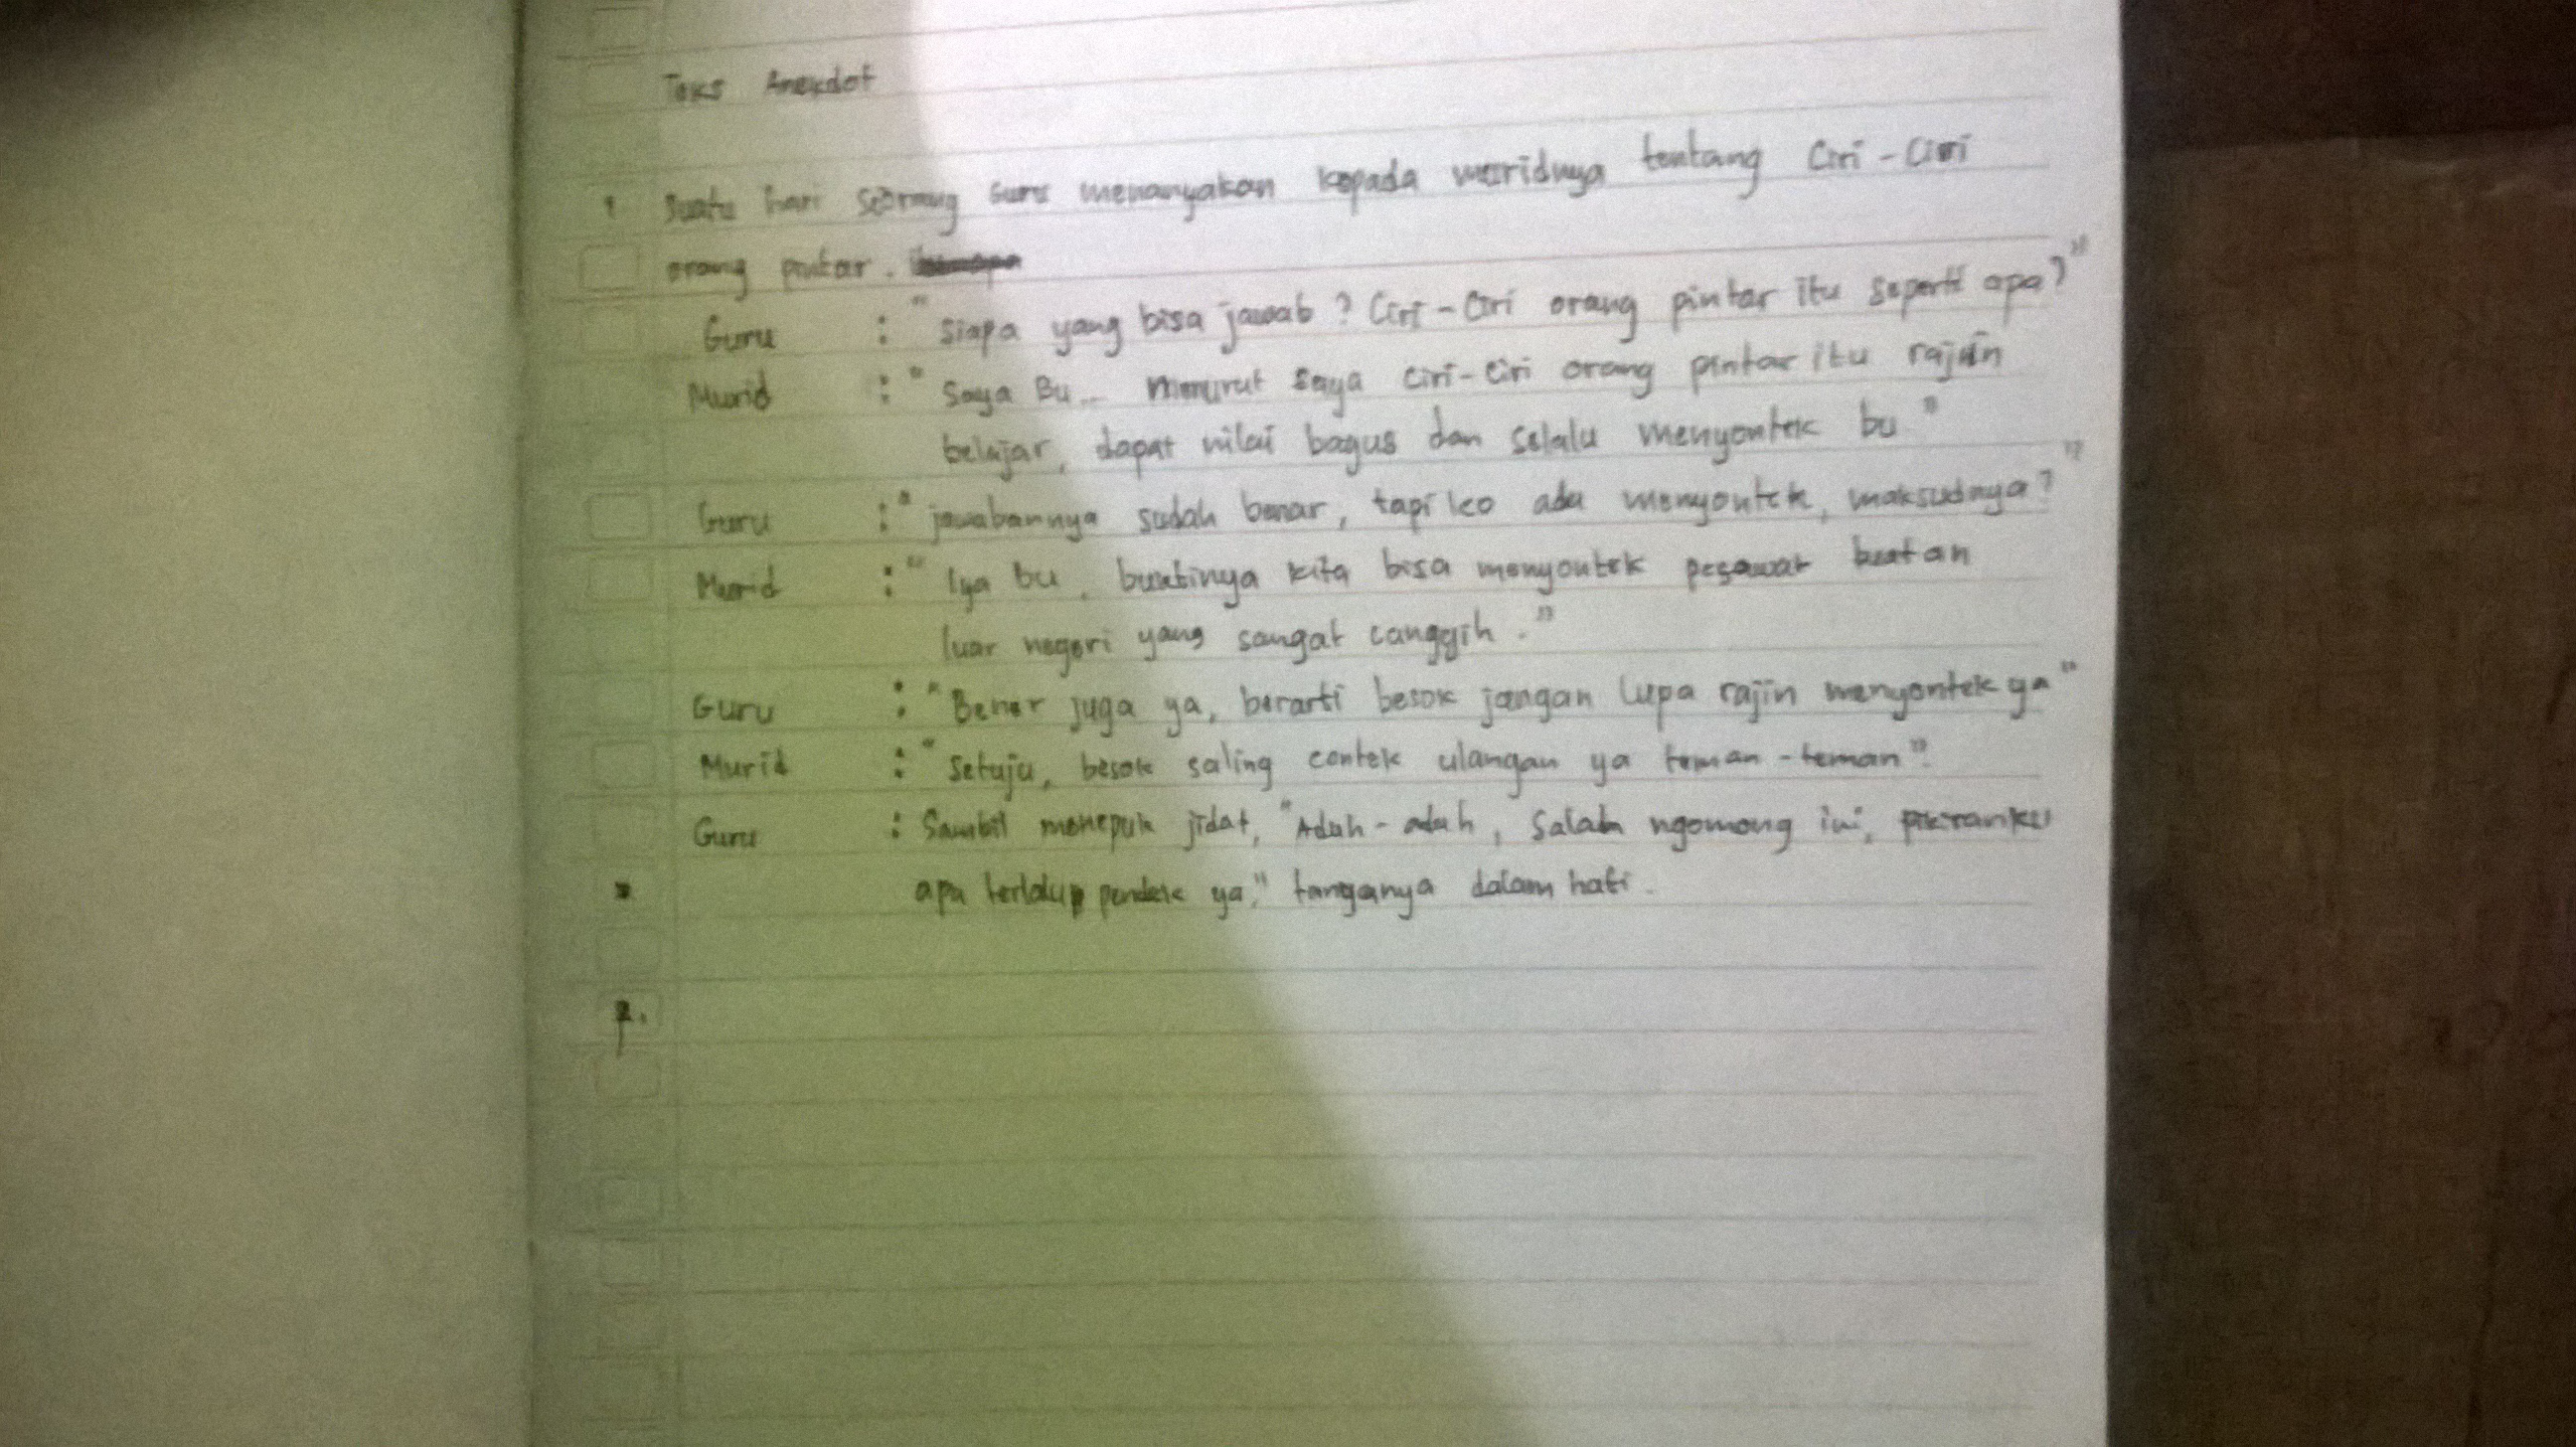 Teks Anekdot
1 Suatu hari seorang Guru menanyakan kepada muridnya tentang Ciri-Ciri
orang pintar.
Guru : "Siapa yang bisa jawab? Ciri-Ciri orang pintar itu seperti apa?"
Murid : "Saya Bu... Menurut saya ciri-ciri orang pintar itu rajin
belajar, dapat nilai bagus dan selalu menyontek bu"
Guru : "jawabannya sudah benar, tapi ko ada menyontek, maksudnya?"
Murid : "Iya bu, buktinya kita bisa menyontek pesawat buatan
luar negeri yang sangat canggih."
Guru : "Bener juga ya, berarti besok jangan lupa rajin menyontek ya"
Murid : "Setuju, besok saling contek ulangan ya teman-teman".
Guru : Sambil menepuk jidat, "Aduh-aduh, Salah ngomong ini, pikiranku
apa terlalu pendek ya," tanyanya dalam hati.